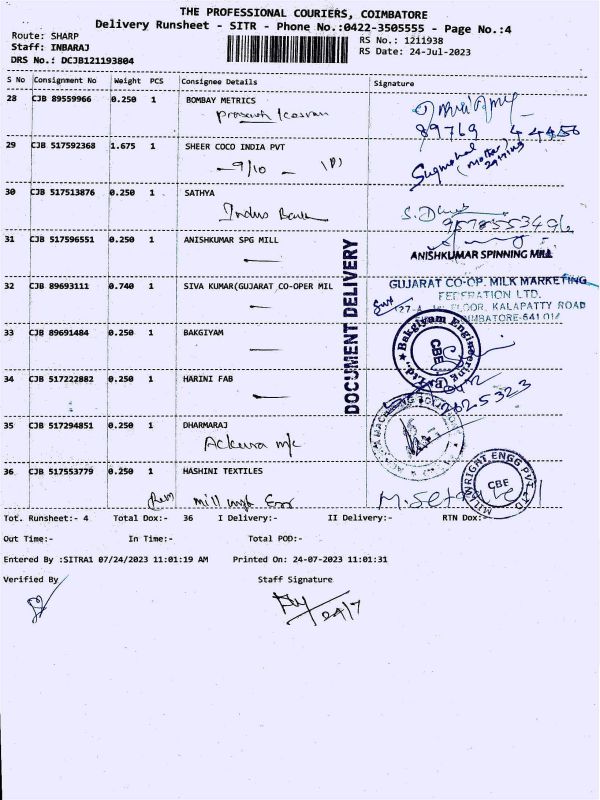 THE PROFESSIONAL COURIERS, COIMBATORE
Delivery Runsheet - SITR - Phone No.:0422-3505555 - Page No.:4
Route: SHARP
RS No.: 1211938
Staff: INBARAJ
RS Date: 24-Jul-2023
DRS No.: DCJB121193804
S No Consignment No Weight PCS Consignee Details Signature
28 CJB 89559966 0.250 1 BOMBAY METRICS
89769 44456
29 CJB 517592368 1.675 1 SHEER COCO INDIA PVT
9/10
30 CJB 517513876 0.250 1 SATHYA
Indus Bank
31 CJB 517596551 0.250 1 ANISHKUMAR SPG MILL
ANISHKUMAR SPINNING MILL
32 CJB 89693111 0.740 1 SIVA KUMAR(GUJARAT CO-OPER MIL
GUJARAT CO-OP. MILK MARKETING
FEDERATION LTD.
FLOOR, KALAPATTY ROAD
COIMBATORE-641 014
DOCUMENT DELIVERY
33 CJB 89691484 0.250 1 BAKGIYAM
Bakgiyam Engineering Pvt Ltd.,
CBE
34 CJB 517222882 0.250 1 HARINI FAB
35 CJB 517294851 0.250 1 DHARMARAJ
m/c
36 CJB 517553779 0.250 1 HASHINI TEXTILES
MILLWRIGHT ENGG PVT LTD
CBE
Tot. Runsheet:- 4 Total Dox:- 36 I Delivery:- II Delivery:- RTN Dox:-
Out Time:- In Time:- Total POD:-
Entered By :SITRA1 07/24/2023 11:01:19 AM Printed On: 24-07-2023 11:01:31
Verified By Staff Signature
24/7